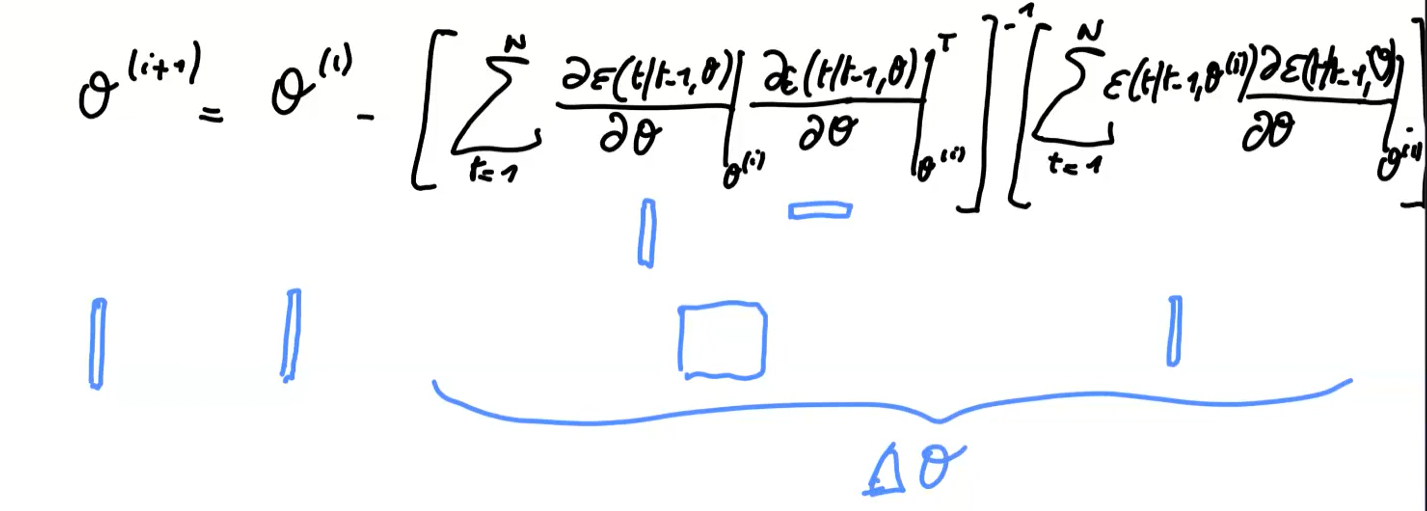 θ^(i+1) = θ^(i) - [ ∑_{t=1}^{N} ∂ε(t|t-1,θ)/∂θ |_{θ^(i)} ∂ε(t|t-1,θ)/∂θ |_{θ^(i)}^T ]^-1 [ ∑_{t=1}^{N} ε(t|t-1,θ^(i)) ∂ε(t|t-1,θ)/∂θ |_{θ^(i)} ]
Δθ